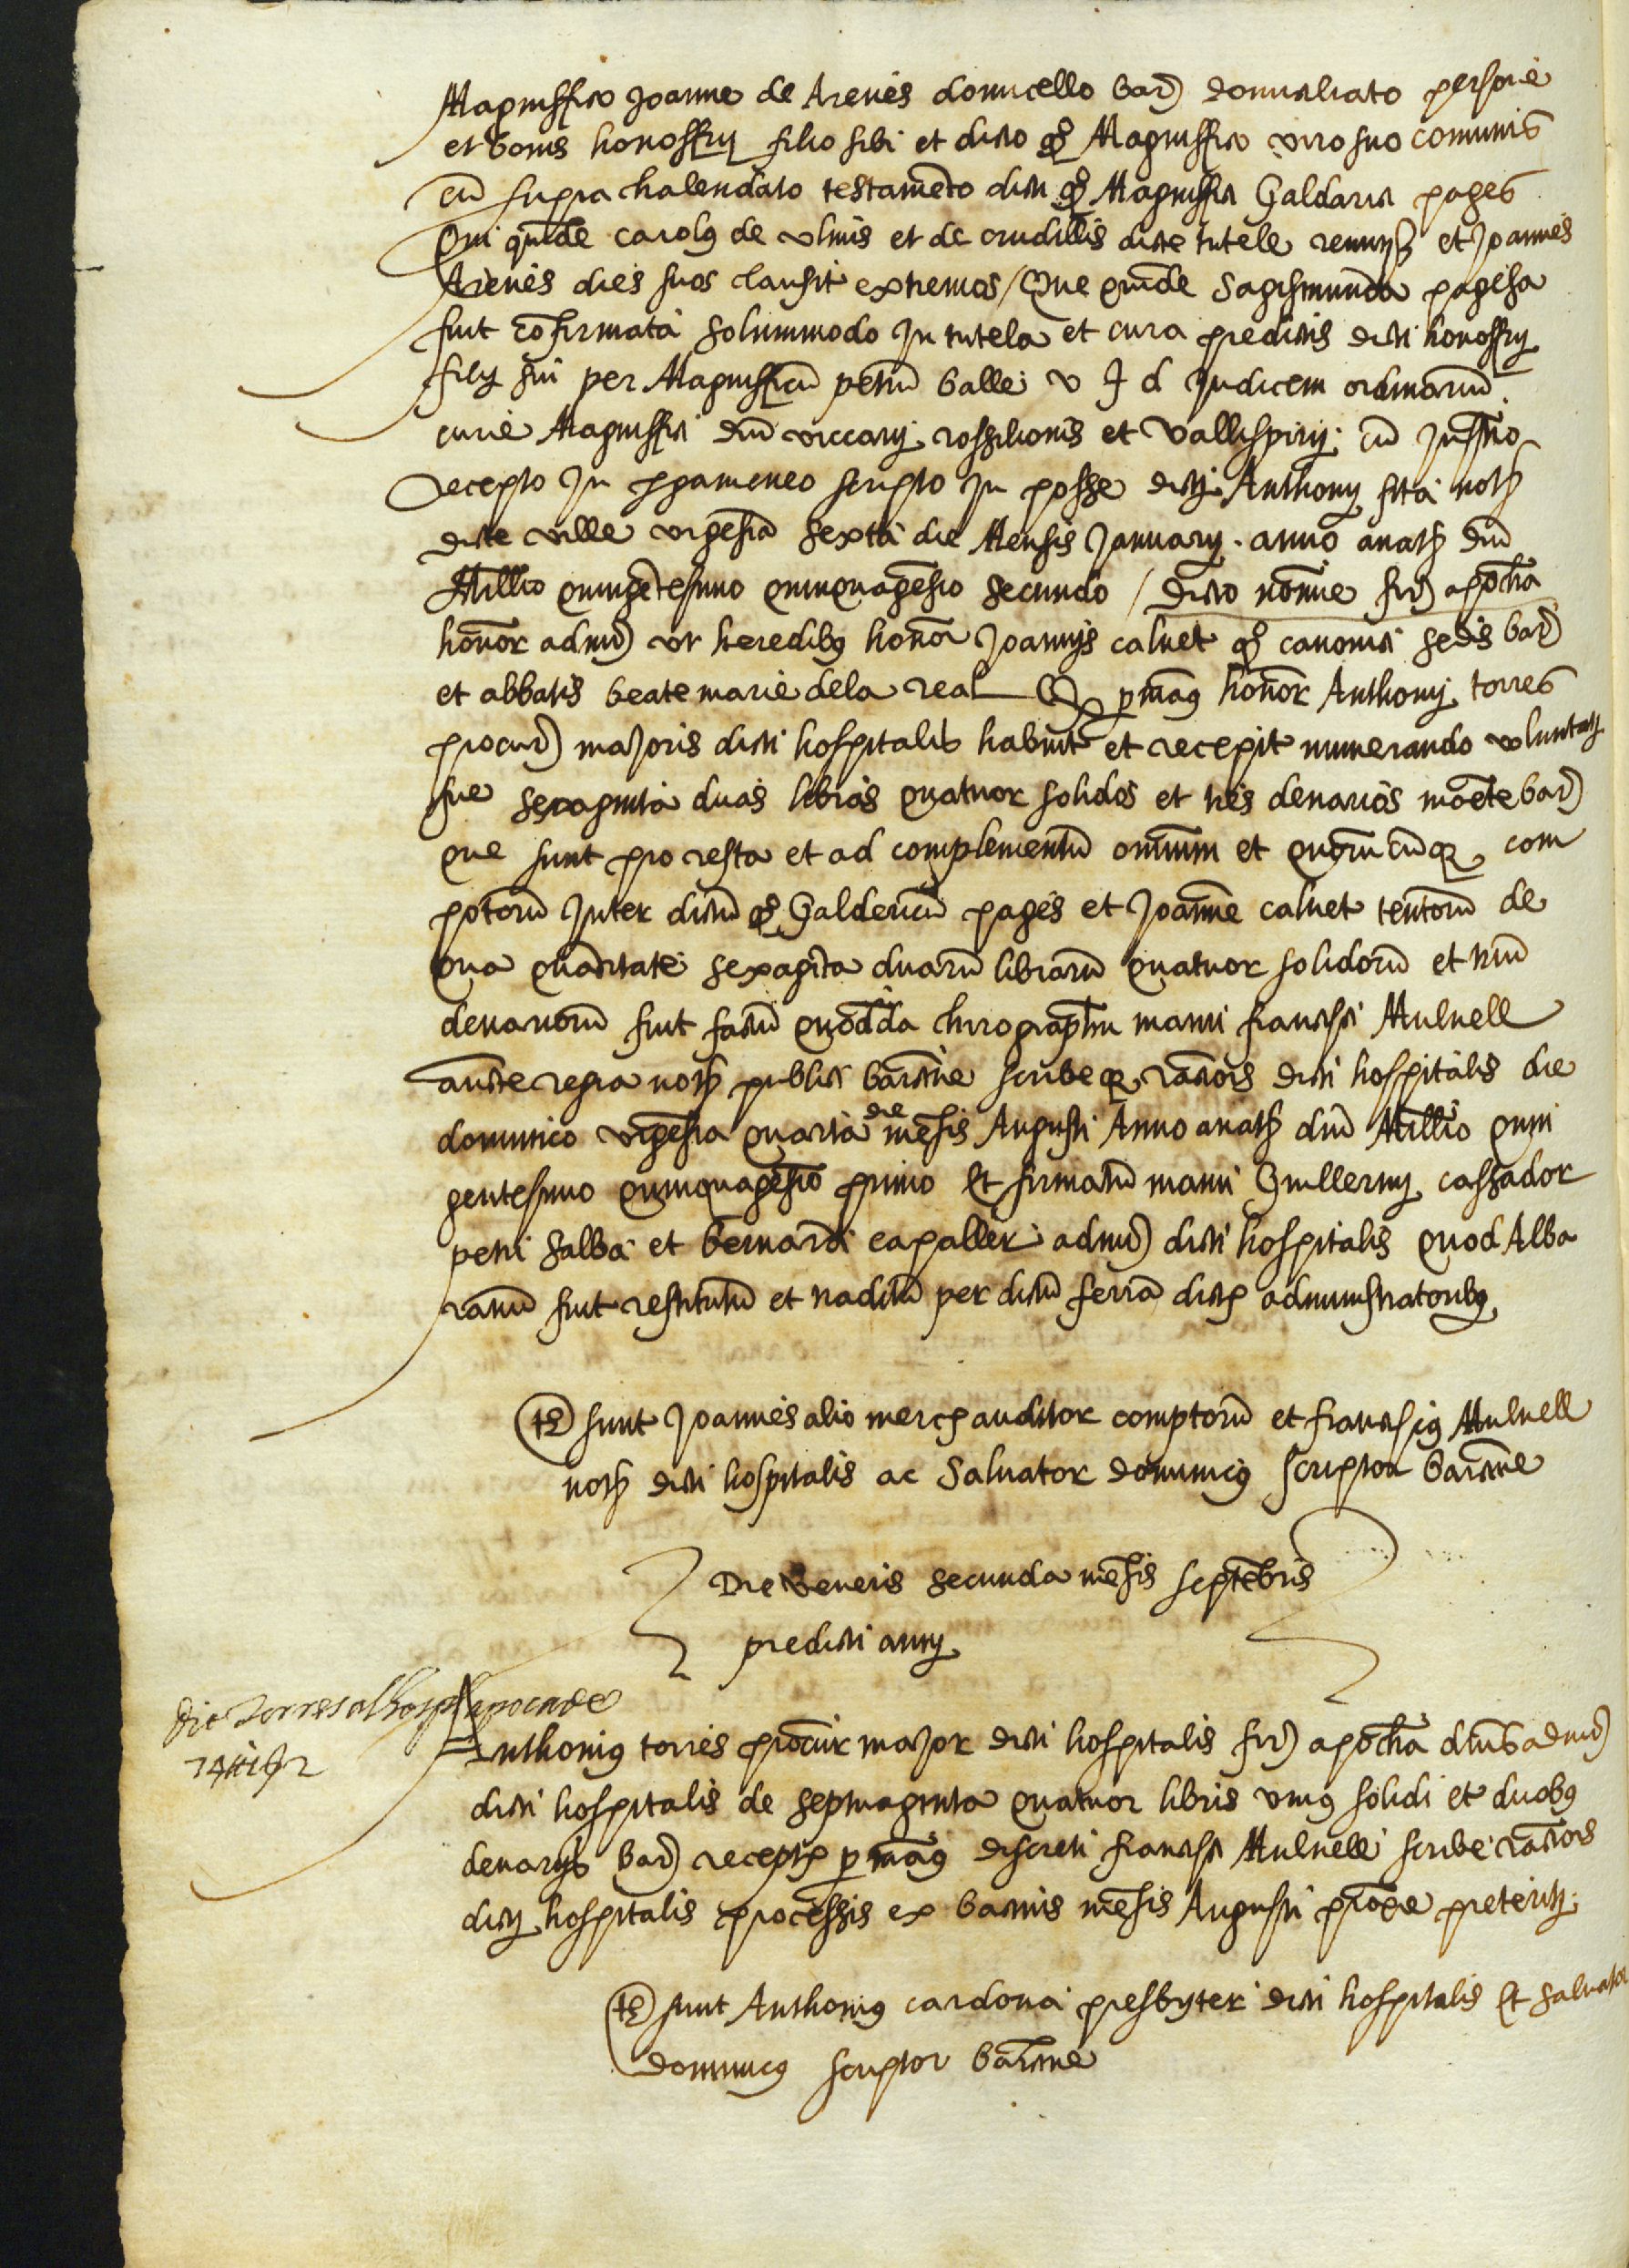 Magniffico Joanne de Arenes domicello bar) domiciliato persone
et bonis honoffrij filio sibi et dicto qo Magniffico viro suo comunis
cu supra kalendato testameto dicti qo Magniffici Galdarici pages
Qui quide carolus de vlmis et de crudillis dicte tutele renuns et Joannes
Arenes dies suos clausit extremos / Que quide Sagismunda pagesa
fuit cofirmata solummodo Jn tutela et cura predictis dicti honoffrij
filij sui per Magnifficu petru balle v J d Judicem ordinariu
curie Magniffici dni viccarij rossilionis et Vallispirij cu Justrio
Recepto Jn pgameneo scripto Jn posse dicti Anthonij fita not
dicte ville vigesia sexta die Mensis January . anno a nat dni
Millio quingetesimo quinquagesio secundo / dicto nomine fir) apocha
honor admi) vt heredibus honor Joannis caluet qo canonici sedis bar)
et abbatis beate marie dela real Q p manus honor Anthonij torres
procur) maJoris dicti hospitalis habuit et recepit numerando voluntati
sue sexaginta duas libras quatuor solidos et tres denarios monete bar)
que sunt pro resta et ad complementu omnium et quorucuq com
potoru Jnter dictu qo Galdericu pages et Joanne caluet tentoru de
qua quatitate sexagita duaru libraru quatuor solidoru et triu
denarioru fuit factu quodda chirographu manu francisci Mulnell
aucte regia not publici barcine scribe q racions dicti hospitalis die
dominico vigesia quarta die mesis Augusti Anno a nat dni Millio quin
gentesimo quinquagesio primo Et firmatu manu Guillermj cassador
petri salba et bernardi capaller admi) dicti hospitalis quod Alba
ranu fuit restitutu et traditu per dictu ferra dictis administratoribus
ts sunt Joannes alio merc auditor comptoru et franciscus Mulnell
not dicti hospitalis ac Saluator dominicus scriptor barcine
Die Veneris secunda mesis septebris
predicti anny
Anthonius torres procur maJor dicti hospitalis fir) apocha dnis admi)
dicti hospitalis de septuaginta quatuor libris vnius solidi et duobus
denarijs bar) receptis p manus discreti francisci Mulnell scribe racions
dicti hospitalis processis ex bacinis mesis Augusti proxe preteriti
ts sunt Anthonius cardona presbyter dicti hospitalis Et saluator
dominicus scriptor barcine